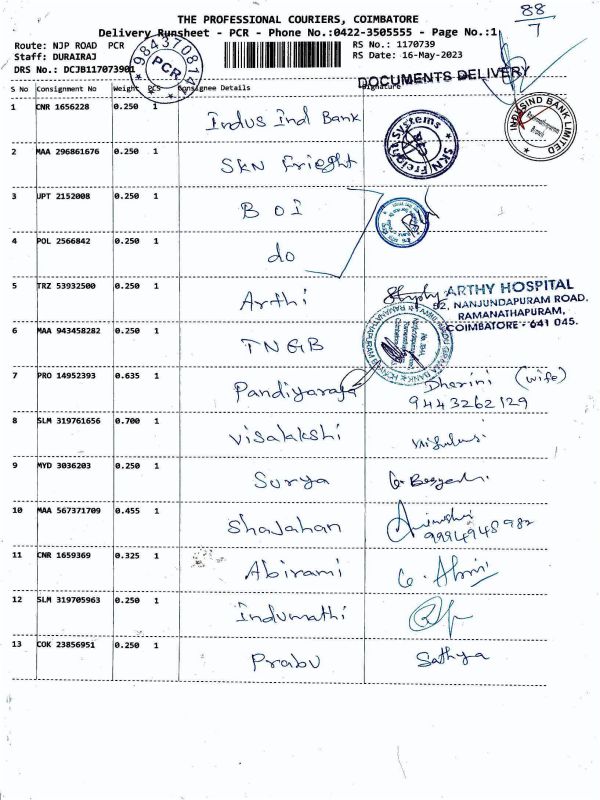 88
7
THE PROFESSIONAL COURIERS, COIMBATORE
Delivery Runsheet - PCR - Phone No.:0422-3505555 - Page No.:1
Route: NJP ROAD PCR
RS No.: 1170739
Staff: DURAIRAJ
RS Date: 16-May-2023
DRS No.: DCJB117073901
PCR
DOCUMENTS DELIVERY
S No Consignment No Weight PCS Consignee Details Signature
1 CNR 1656228 0.250 1 Indus Ind Bank
INDUSIND BANK LIMITED
2 MAA 296861676 0.250 1 SKN Frieght
SKN Freight Systems
3 JPT 2152008 0.250 1 BOI
4 POL 2566842 0.250 1 do
5 TRZ 53932500 0.250 1 Arthi
ARTHY HOSPITAL
52, NANJUNDAPURAM ROAD,
RAMANATHAPURAM,
COIMBATORE - 641 045.
6 MAA 943458282 0.250 1 TNGB
7 PRO 14952393 0.635 1 Pandiyaraja Dharini (wife)
9443262129
8 SLM 319761656 0.700 1 Visalakshi
9 MYD 3036203 0.250 1 Surya
10 MAA 567371709 0.455 1 Shajahan
9994948982
11 CNR 1659369 0.325 1 Abirami
12 SLM 319705963 0.250 1 Indumathi
13 COK 23856951 0.250 1 Prabu Sathya